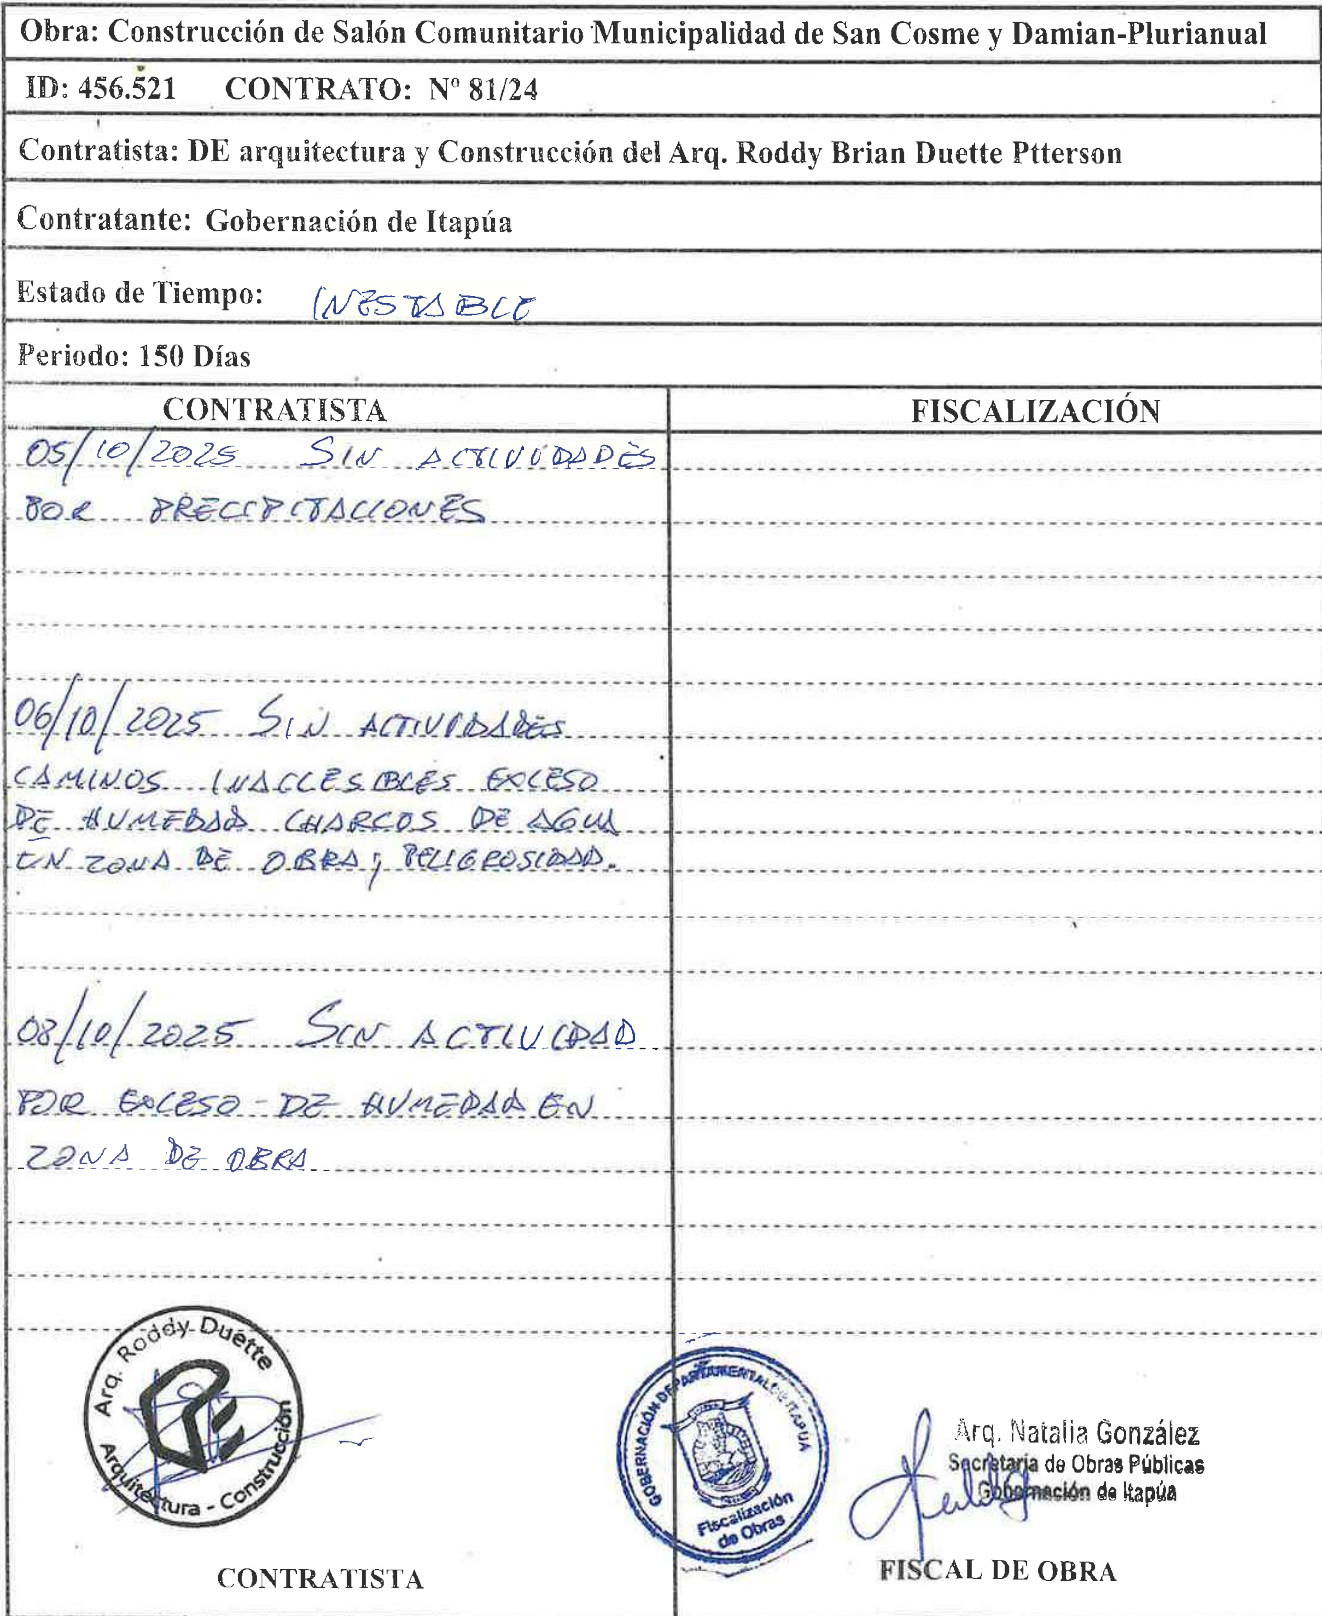 Obra: Construcción de Salón Comunitario Municipalidad de San Cosme y Damian-Plurianual
ID: 456.521 CONTRATO: Nº 81/24
Contratista: DE arquitectura y Construcción del Arq. Roddy Brian Duette Ptterson
Contratante: Gobernación de Itapúa
Estado de Tiempo: INESTABLE
Periodo: 150 Días
CONTRATISTA
FISCALIZACIÓN
05/10/2025 SIN ACTIVIDADES
POR PRECIPITACIONES
06/10/2025 SIN ACTIVIDADES
CAMINOS INACCESIBLES EXCESO
DE HUMEDAD CHARCOS DE AGUA
EN ZONA DE OBRA; PELIGROSIDAD.
08/10/2025 SIN ACTIVIDAD
POR EXCESO - DE HUMEDAD EN
ZONA DE OBRA
Arq. Roddy Duette
Arquitectura - Construcción
GOBERNACIÓN DEPARTAMENTAL DE ITAPUA
Fiscalización
de Obras
Arq. Natalia González
Secretaria de Obras Públicas
Gobernación de Itapúa
CONTRATISTA
FISCAL DE OBRA